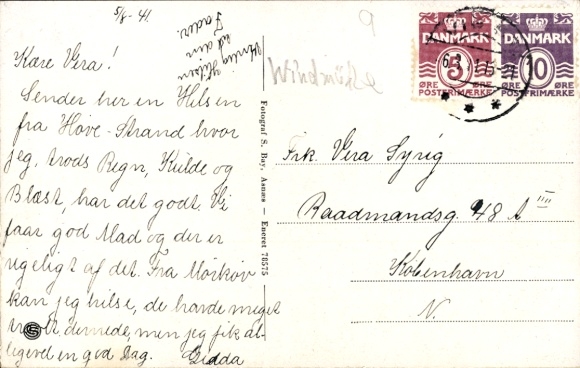 5/8 - 41.
Kære Vera!
Sender her en Hilsen
fra Høve-Strand hvor
jeg, trods Regn, Kulde og
Blæst, har det godt. Vi
faar god Mad og der er
rigeligt af det. Fra Mörkøv
kan jeg hilse, de havde meget
travlt dernede, men jeg fik al-
ligevel en god Dag. Gedda
Hilsen
til din
Fader.
Fotograf S. Bay, Asnæs — Eneret 76575
DANMARK
5
ØRE ØRE
POSTFRIMÆRKE
DANMARK
10
ØRE ØRE
POSTFRIMÆRKE
Frk. Vera Syrig
Raadmandsg. 48 A III
København
N.